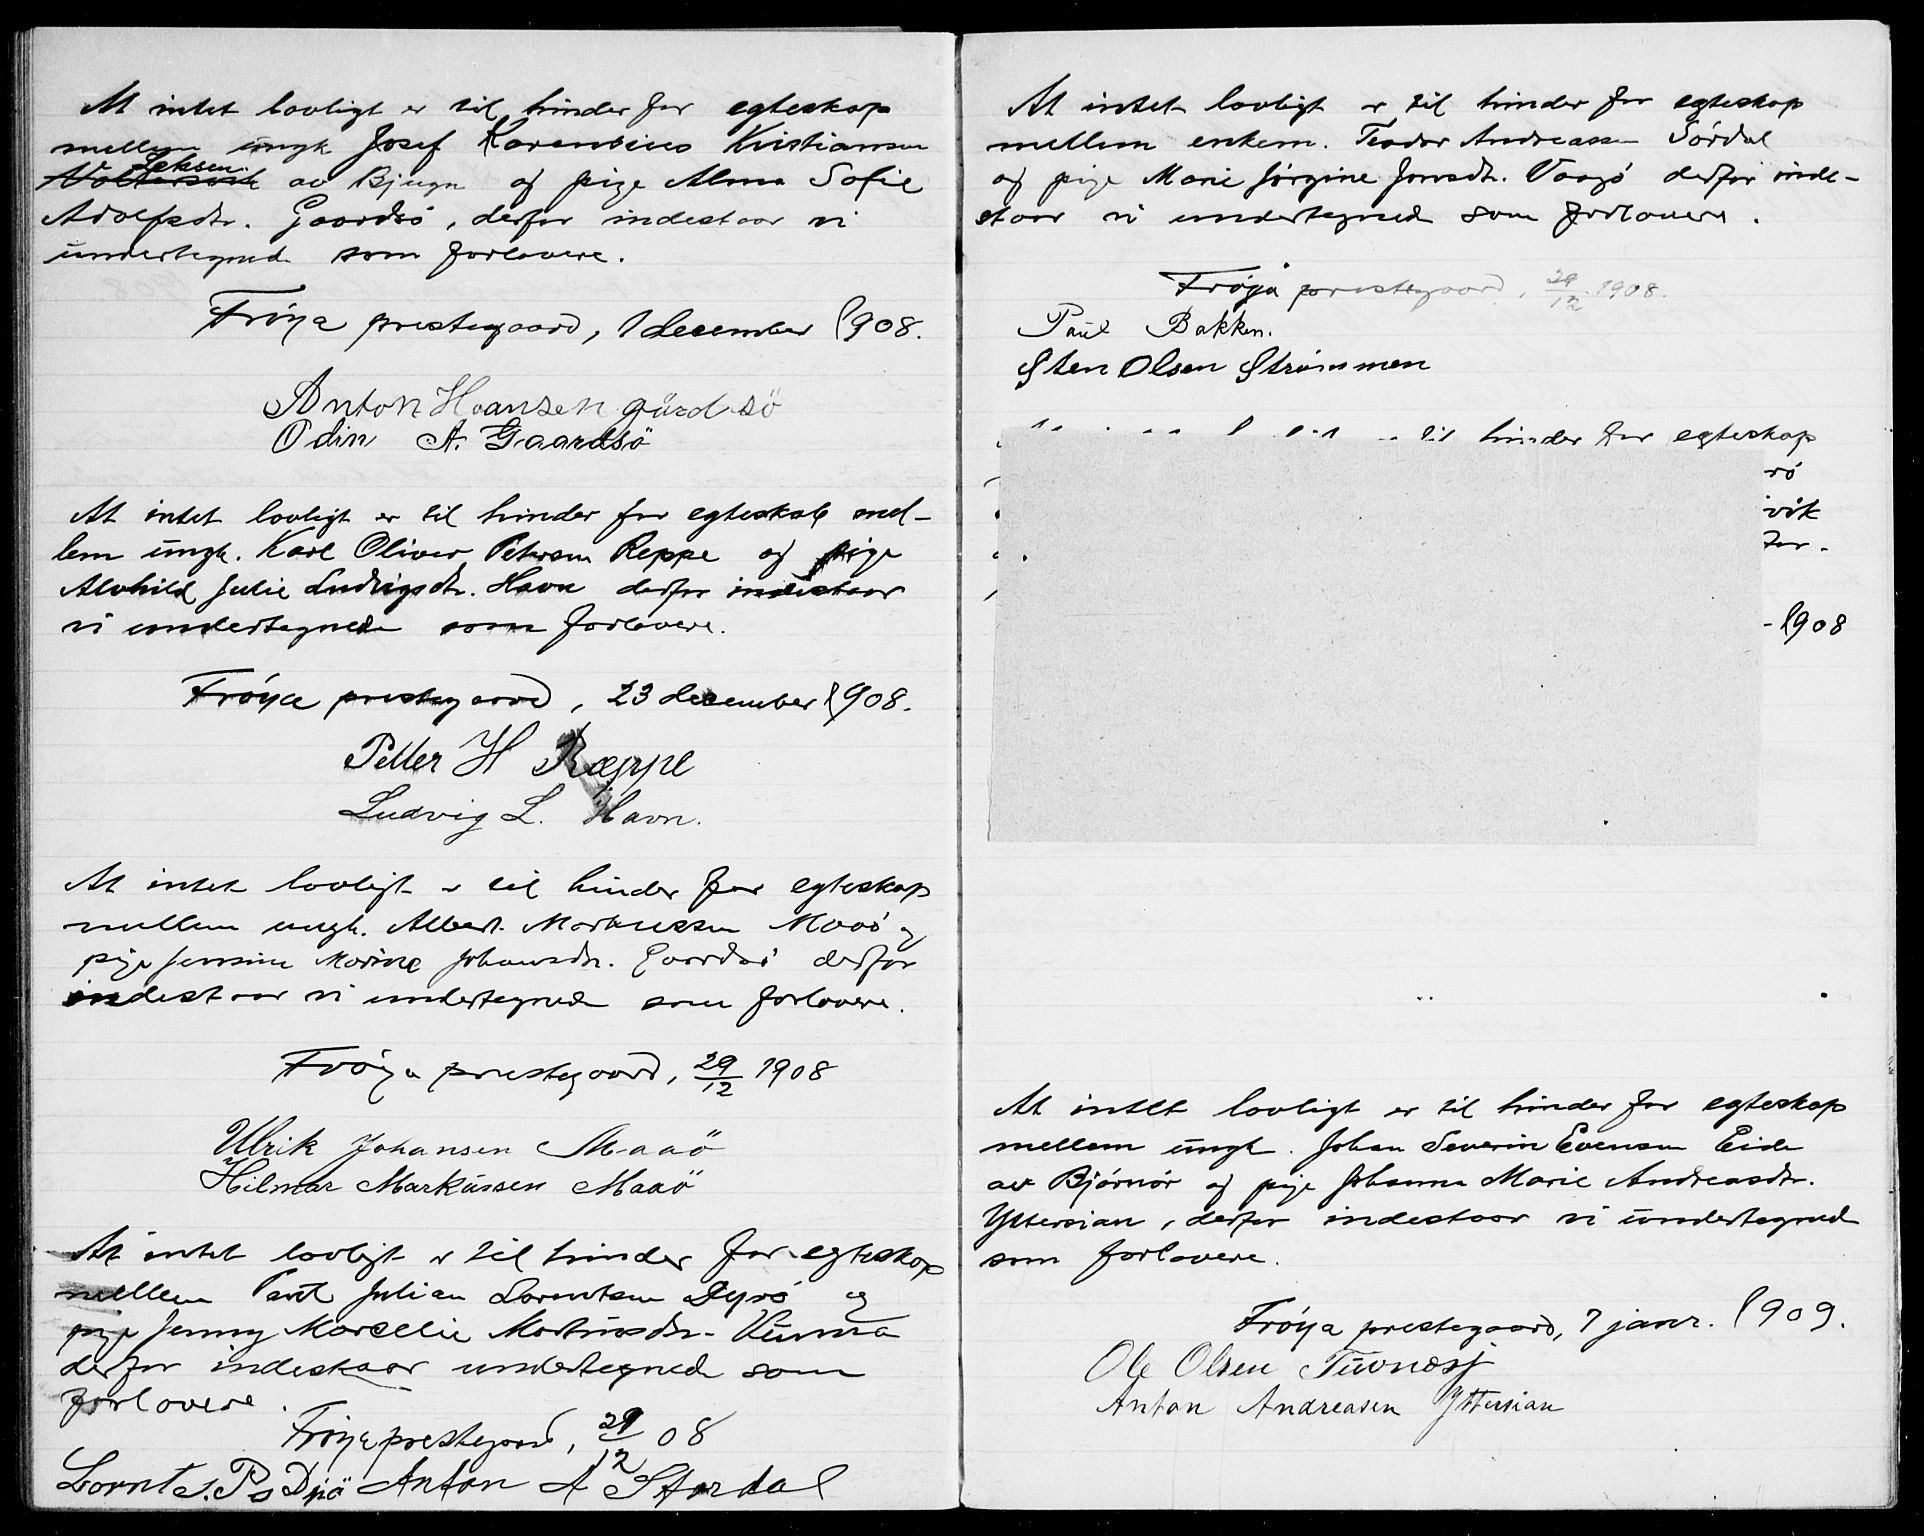 At intet lovligt er til hinder for egteskap
mellem ungk Josef Karensius Kristiansen
Jektsen. av Bjugn og pige Alma Sofie
Adolfsdtr. Gaardsö, derfor indestaar vi
undertegned som forlovere.
Fröya prestegaard, 1 december 1908.
Anton Hansen gårdsö
Odin A. Gaardsö
At intet lovligt er til hinder for egteskab mel-
lem ungk. Karl Oliver Petersen Reppe og pige
Alvhild Julie Ludvigsdtr. Havn derfor indestaar
vi undertegnede som forlovere.
Fröya prestegaard, 23 december 1908.
Petter H Ræppe
Ludvig L. Havn.
At intet lovligt er til hinder for egteskap
mellem ungk. Albert Markussen Maaö og
pige Jensine Marine Johansdtr. Gaardsö derfor
indestaar vi undertegnede som forlovere.
Fröya prestegaard, 29/12 1908
Ulrik Johansen Maaö
Hilmar Markussen Maaö
At intet lovligt er til hinder for egteskap
mellem Paul Julian Lorentsen Dyrö og
pige Jenny Marselie Martinsdtr. Kunna
derfor indestaar undertegnede som
forlovere.
Fröya prestegaard, 29/12 08
Lornts. Ps Dyrö Anton A Stordal
At intet lovligt er til hinder for egteskap
mellem enkem. Teodor Andreassen Sördal
og pige Marie Jörgine Jonsdtr. Vaagö derfor inde-
staar vi undertegned som forlovere.
Fröya prestegaard, 29/12 1908.
Paul Bakken.
Sten Olsen Strömmen
til hinder for egteskap
rö
vik
for-
-1908
At intet lovligt er til hinder for egteskap
mellem ungk. Johan Severin Evensen Eide
av Björnör og pige Johanna Marie Andreasdtr.
Yttersian, derfor indestaar vi undertegned
som forlovere.
Fröya prestegaard, 7 janr. 1909.
Ole Olsen
Anton Andreasen Yttersian